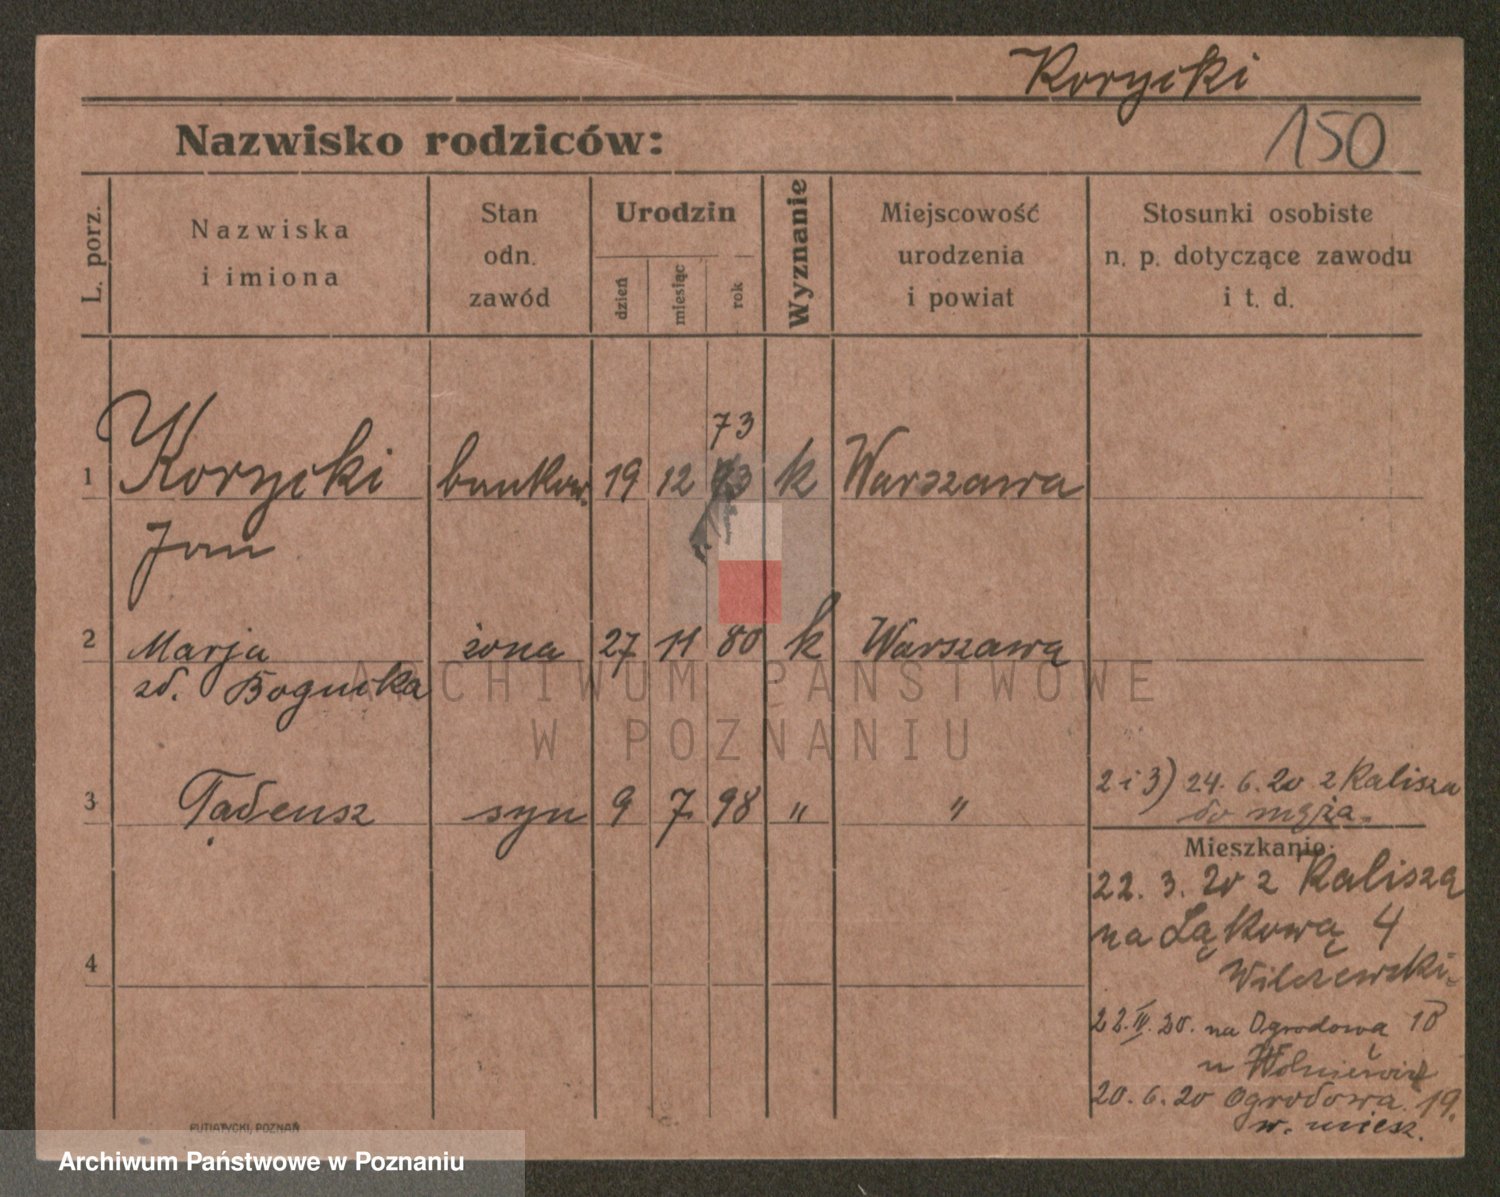 Korycki
150
Nazwisko rodziców:
L. porz.
Nazwiska
i imiona
Stan
odn.
zawód
Urodzin
dzień
miesiąc
rok
Wyznanie
Miejscowość
urodzenia
i powiat
Stosunki osobiste
n. p. dotyczące zawodu
i t. d.
73
1 Korycki bankow. 19 12 k Warszawa
Jan
2 Marja żona 27 11 80 k Warszawa
zd. Bogucka
3 Tadeusz syn 9 7 98 " "
2 i 3) 24. 6. 20 z Kalisza
do męża.
Mieszkanie:
22. 3. 20 z Kalisza
na Łąkową 4
Wilczewski
4
22. IV. 20. na Ogrodową 10
u
20. 6. 20 Ogrodowa 19.
w. miesz.
PUTIATYCKI, POZNAŃ
ARCHIWUM PAŃSTWOWE
W POZNANIU
Archiwum Państwowe w Poznaniu